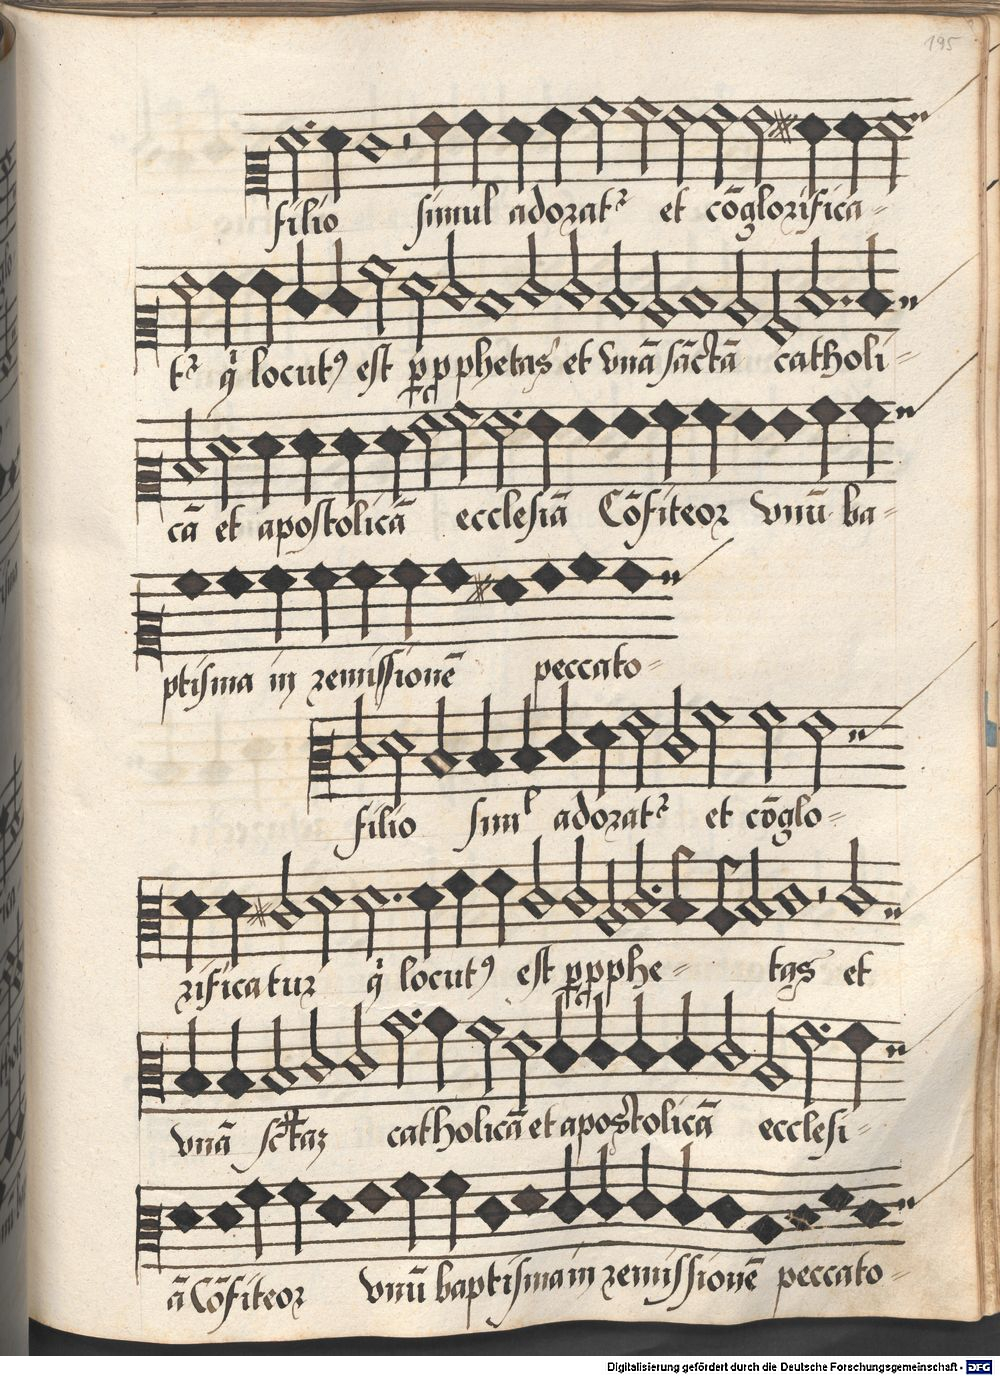 195
filio simul adorat᷑ et cōglorifica=
t᷑ q̇ locutꝰ est ꝑ ꝓphetas et vnā sāctā catholi=
cā et apostolicā ecclesiā Cōfiteor vnū ba=
ptisma in remissionē peccato=
filio simˡ adorat᷑ et cōglo=
rificatur q̇ locutꝰ est ꝑ ꝓphe= tas et
vnā sc̄taz catholicā et apostolicā ecclesi=
ā Cōfiteor vnū baptisma in remissionē peccato=
Digitalisierung gefördert durch die Deutsche Forschungsgemeinschaft - DFG